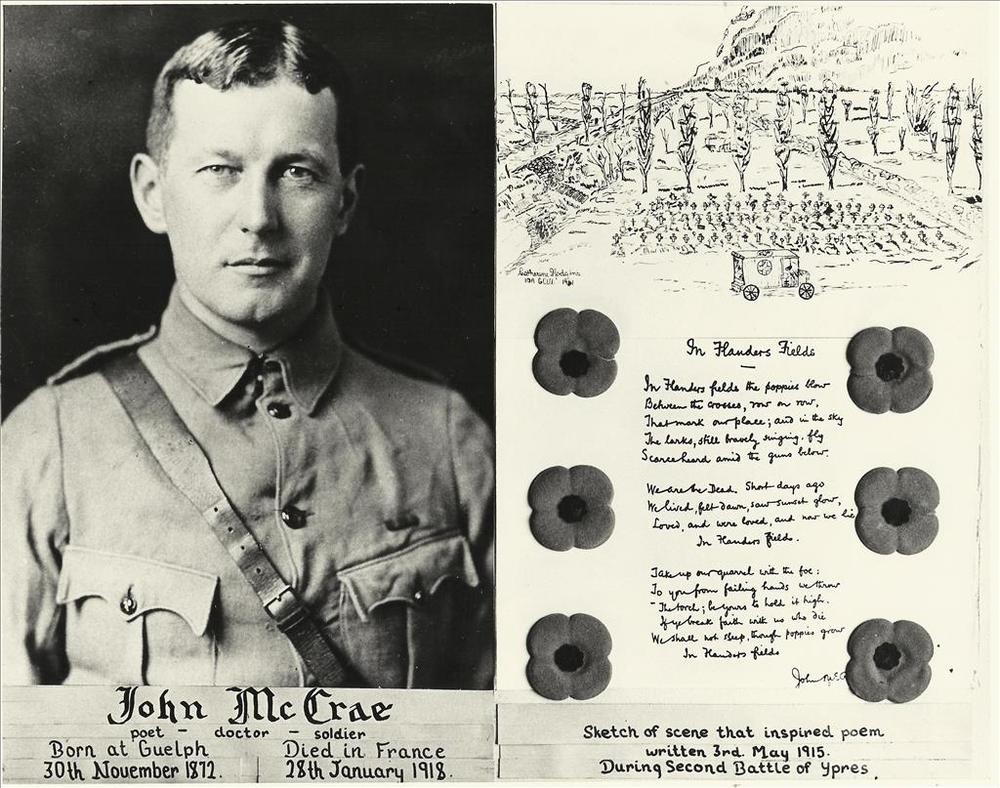 John McCrae
poet - doctor - soldier
Born at Guelph
30th November 1872.
Died in France
28th January 1918.
Catherine Hodgins
1931
In Flanders Fields
In Flanders fields the poppies blow
Between the crosses, row on row,
That mark our place; and in the sky
The larks, still bravely singing, fly
Scarce heard amid the guns below.
We are the Dead. Short days ago
We lived, felt dawn, saw sunset glow,
Loved, and were loved, and now we lie
In Flanders fields.
Take up our quarrel with the foe:
To you from failing hands we throw
The torch; be yours to hold it high.
If ye break faith with us who die
We shall not sleep, though poppies grow
In Flanders fields
John
Sketch of scene that inspired poem
written 3rd. May 1915.
During Second Battle of Ypres.